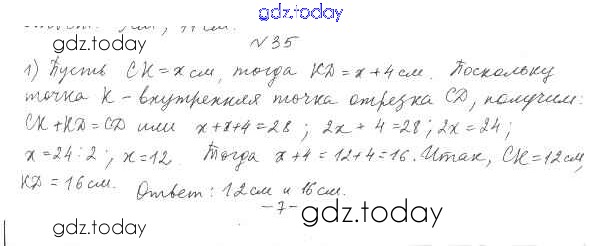 gdz.today
gdz.today
№35
gdz.today
1) Пусть СК = x см, тогда KD = x + 4 см. Поскольку
точка К - внутренняя точка отрезка CD, получим:
СК + KD = CD или x + x + 4 = 28; 2x + 4 = 28; 2x = 24;
x = 24 : 2; x = 12. Тогда x + 4 = 12 + 4 = 16. Итак, СК = 12 см,
KD = 16 см. Ответ: 12 см и 16 см.
- 7 -
gdz.today
gdz.today